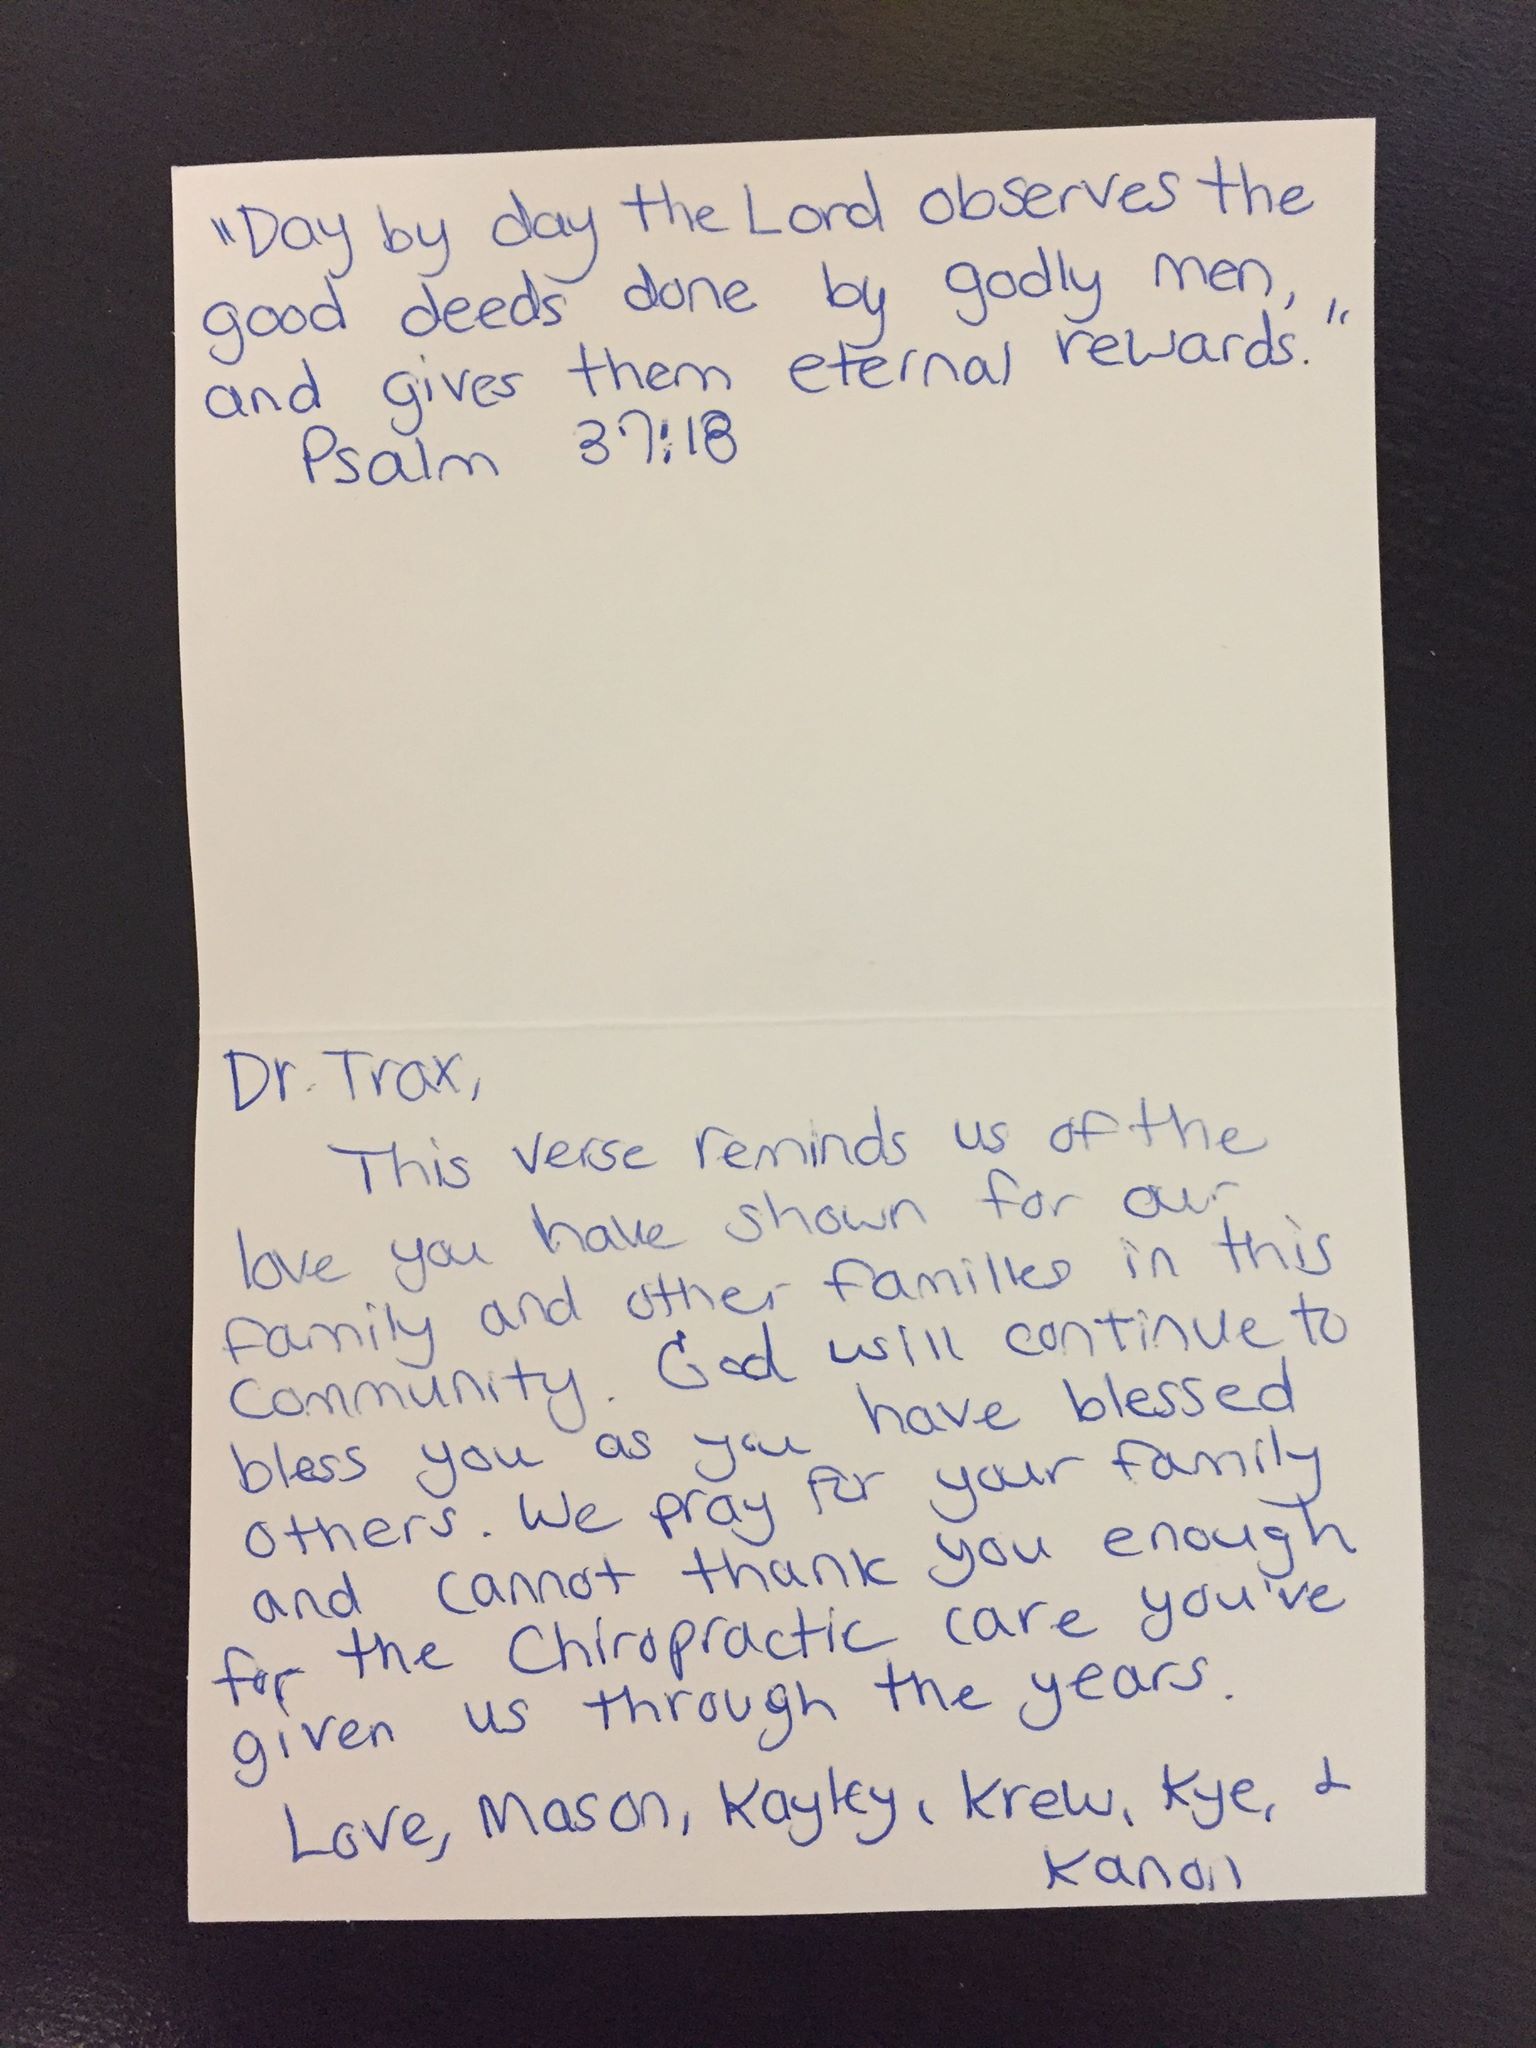 "Day by day the Lord observes the
good deeds done by godly men,
and gives them eternal rewards."
Psalm 37:18
Dr. Trax,
This verse reminds us of the
love you have shown for our
family and other families in this
community. God will continue to
bless you as you have blessed
others. We pray for your family
and cannot thank you enough
for the Chiropractic care you've
given us through the years.
Love, Mason, Kayley, Krew, Kye, &
Kanon